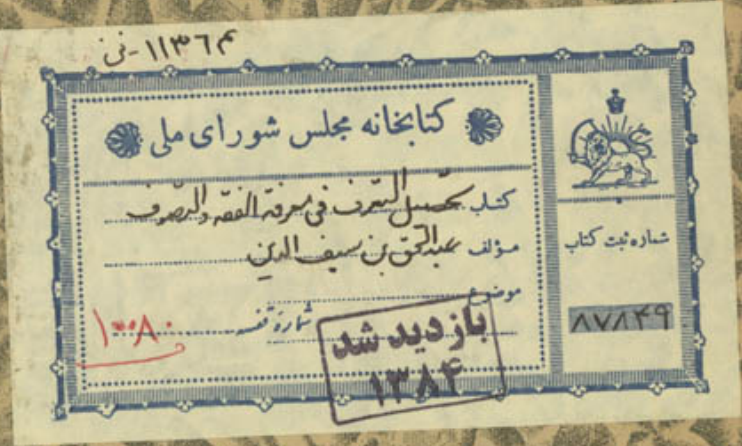 ۱۱۳۶۴-فی
کتابخانه مجلس شورای ملی
کتاب تحصیل التعرف فی معرفة الفقه والتصوف
مؤلف عبدالحق بن سیف الدین
موضوع
شماره قفسه ۱۰۰۸۰
شماره ثبت کتاب
۸۷۸۴۹
بازدید شد
۱۳۸۴